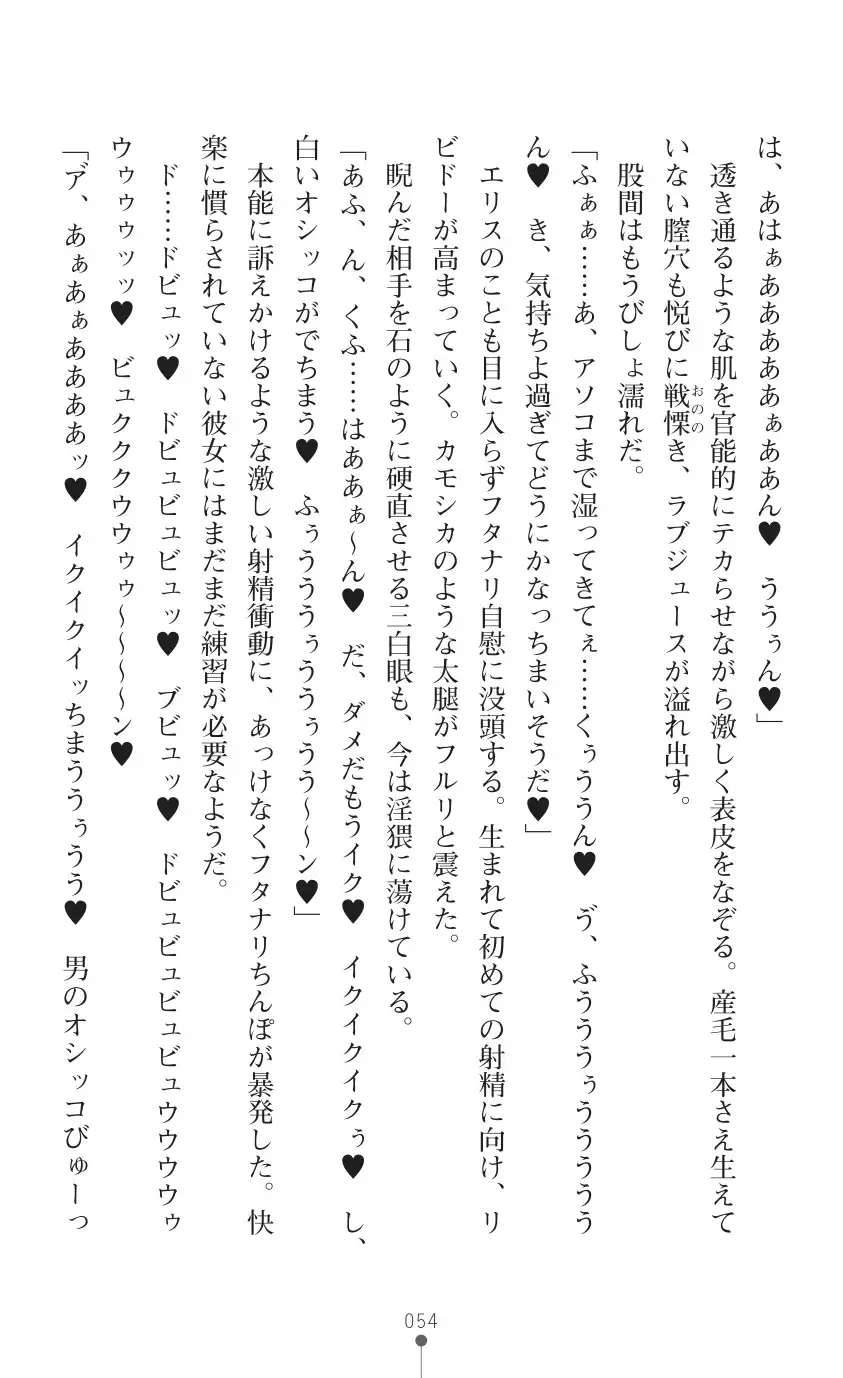 は、あはぁあああああぁああん♥　ううぅん♥」
　透き通るような肌を官能的にテカらせながら激しく表皮をなぞる。産毛一本さえ生えて
いない膣穴も悦びに戦慄き、ラブジュースが溢れ出す。
おのの
　股間はもうびしょ濡れだ。
「ふぁぁ……あ、アソコまで湿ってきてぇ……くぅううん♥　ゔ、ふうううぅううううう
ん♥　き、気持ちよ過ぎてどうにかなっちまいそうだ♥」
　エリスのことも目に入らずフタナリ自慰に没頭する。生まれて初めての射精に向け、リ
ビドーが高まっていく。カモシカのような太腿がフルリと震えた。
　睨んだ相手を石のように硬直させる三白眼も、今は淫猥に蕩けている。
「あふ、ん、くふ……はああぁ〜ん♥　だ、ダメだもうイク♥　イクイクイクぅ♥　し、
白いオシッコがでちまう♥　ふぅうううぅううぅうう〜〜ン♥」
　本能に訴えかけるような激しい射精衝動に、あっけなくフタナリちんぽが暴発した。快
楽に慣らされていない彼女にはまだまだ練習が必要なようだ。
　ド……ドビュッ♥　ドビュビュビュッ♥　ブビュッ♥　ドビュビュビュビュウウウウゥ
ウゥゥゥッッ♥　ビュククククウウゥゥ〜〜〜〜ン♥
「ア、あぁあぁああああッ♥　イクイクイッちまううぅうう♥　男のオシッコびゅーっ
054